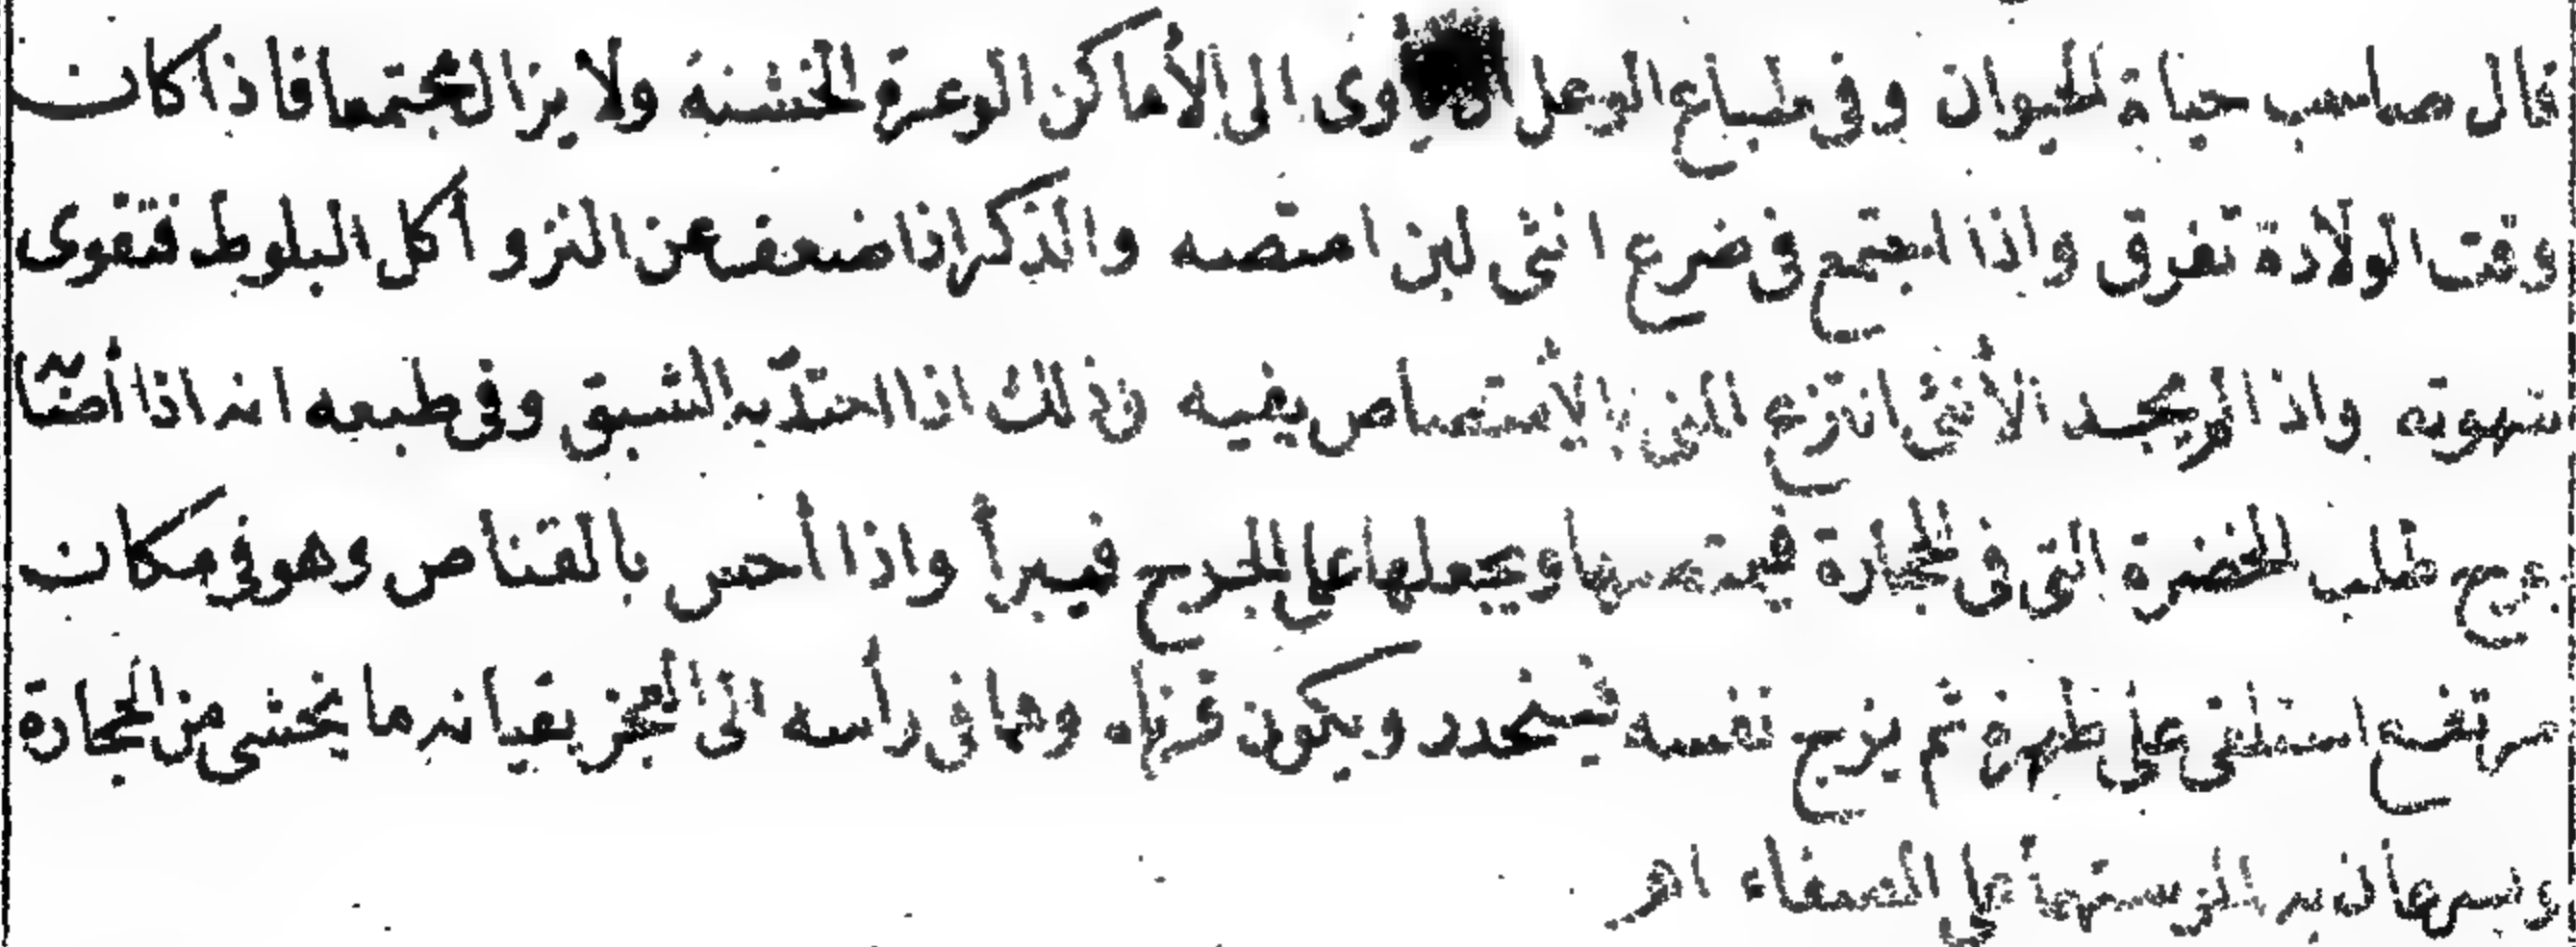 قال صاحب حياة الحيوان وفى طباع الوعل أنه يأوى الى الأماكن الوعرة الخشنة ولا يزال مجتمعا فاذا كان
وقت الولادة تفرق واذا اجتمع فى ضرع انثى لبن امتصه والذكر اذا ضعف عن النزو أكل البلوط فتقوى
شهوته واذا لم يجد الأنثى انتزع المنى بالأمتصاص بفيه وذلك اذا اشتدّ به الشبق وفى طبعه انه اذا أصابه
جرح طلب الخضرة التى فى الحجارة فيمتصها ويجعلها على الجرح فيبرأ واذا أحس بالقناص وهو فى مكان
مرتفع استلقى على ظهره ثم يزج نفسه فينحدر ويكون قرناه وهما فى رأسه الى العجز يقيانه ما يخشى من الحجارة
ويسرعان به لملوستهما على الصفاء اهـ